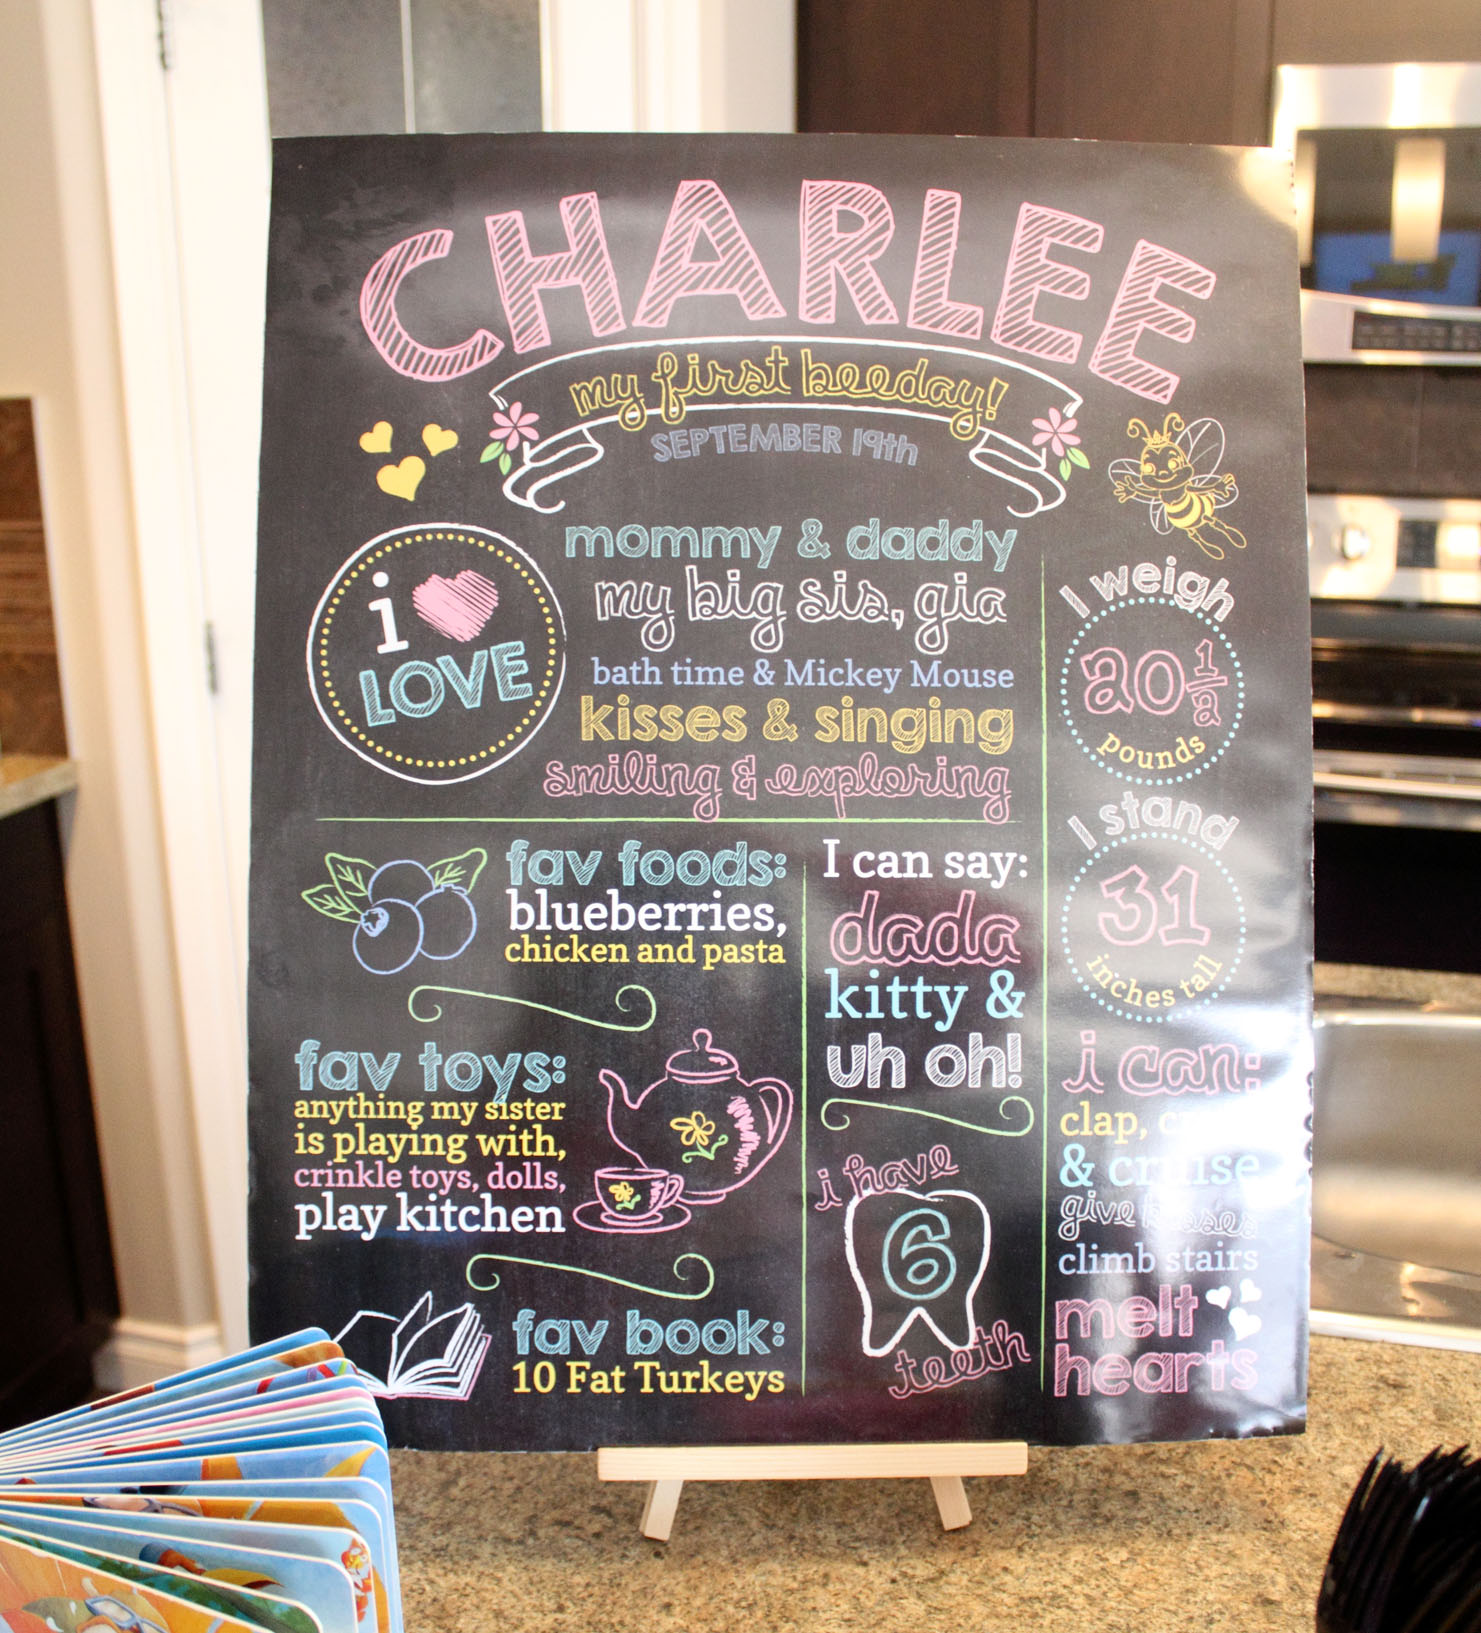 CHARLEE
my first beeday!
SEPTEMBER 19th
i
LOVE
mommy & daddy
my big sis, gia
bath time & Mickey Mouse
kisses & singing
smiling & exploring
I weigh
20 1/2
pounds
I stand
31
inches tall
fav foods:
blueberries,
chicken and pasta
fav toys:
anything my sister
is playing with,
crinkle toys, dolls,
play kitchen
fav book:
10 Fat Turkeys
I can say:
dada
kitty &
uh oh!
i have
6
teeth
i can:
clap,
& cruise
give kisses
climb stairs
melt
hearts